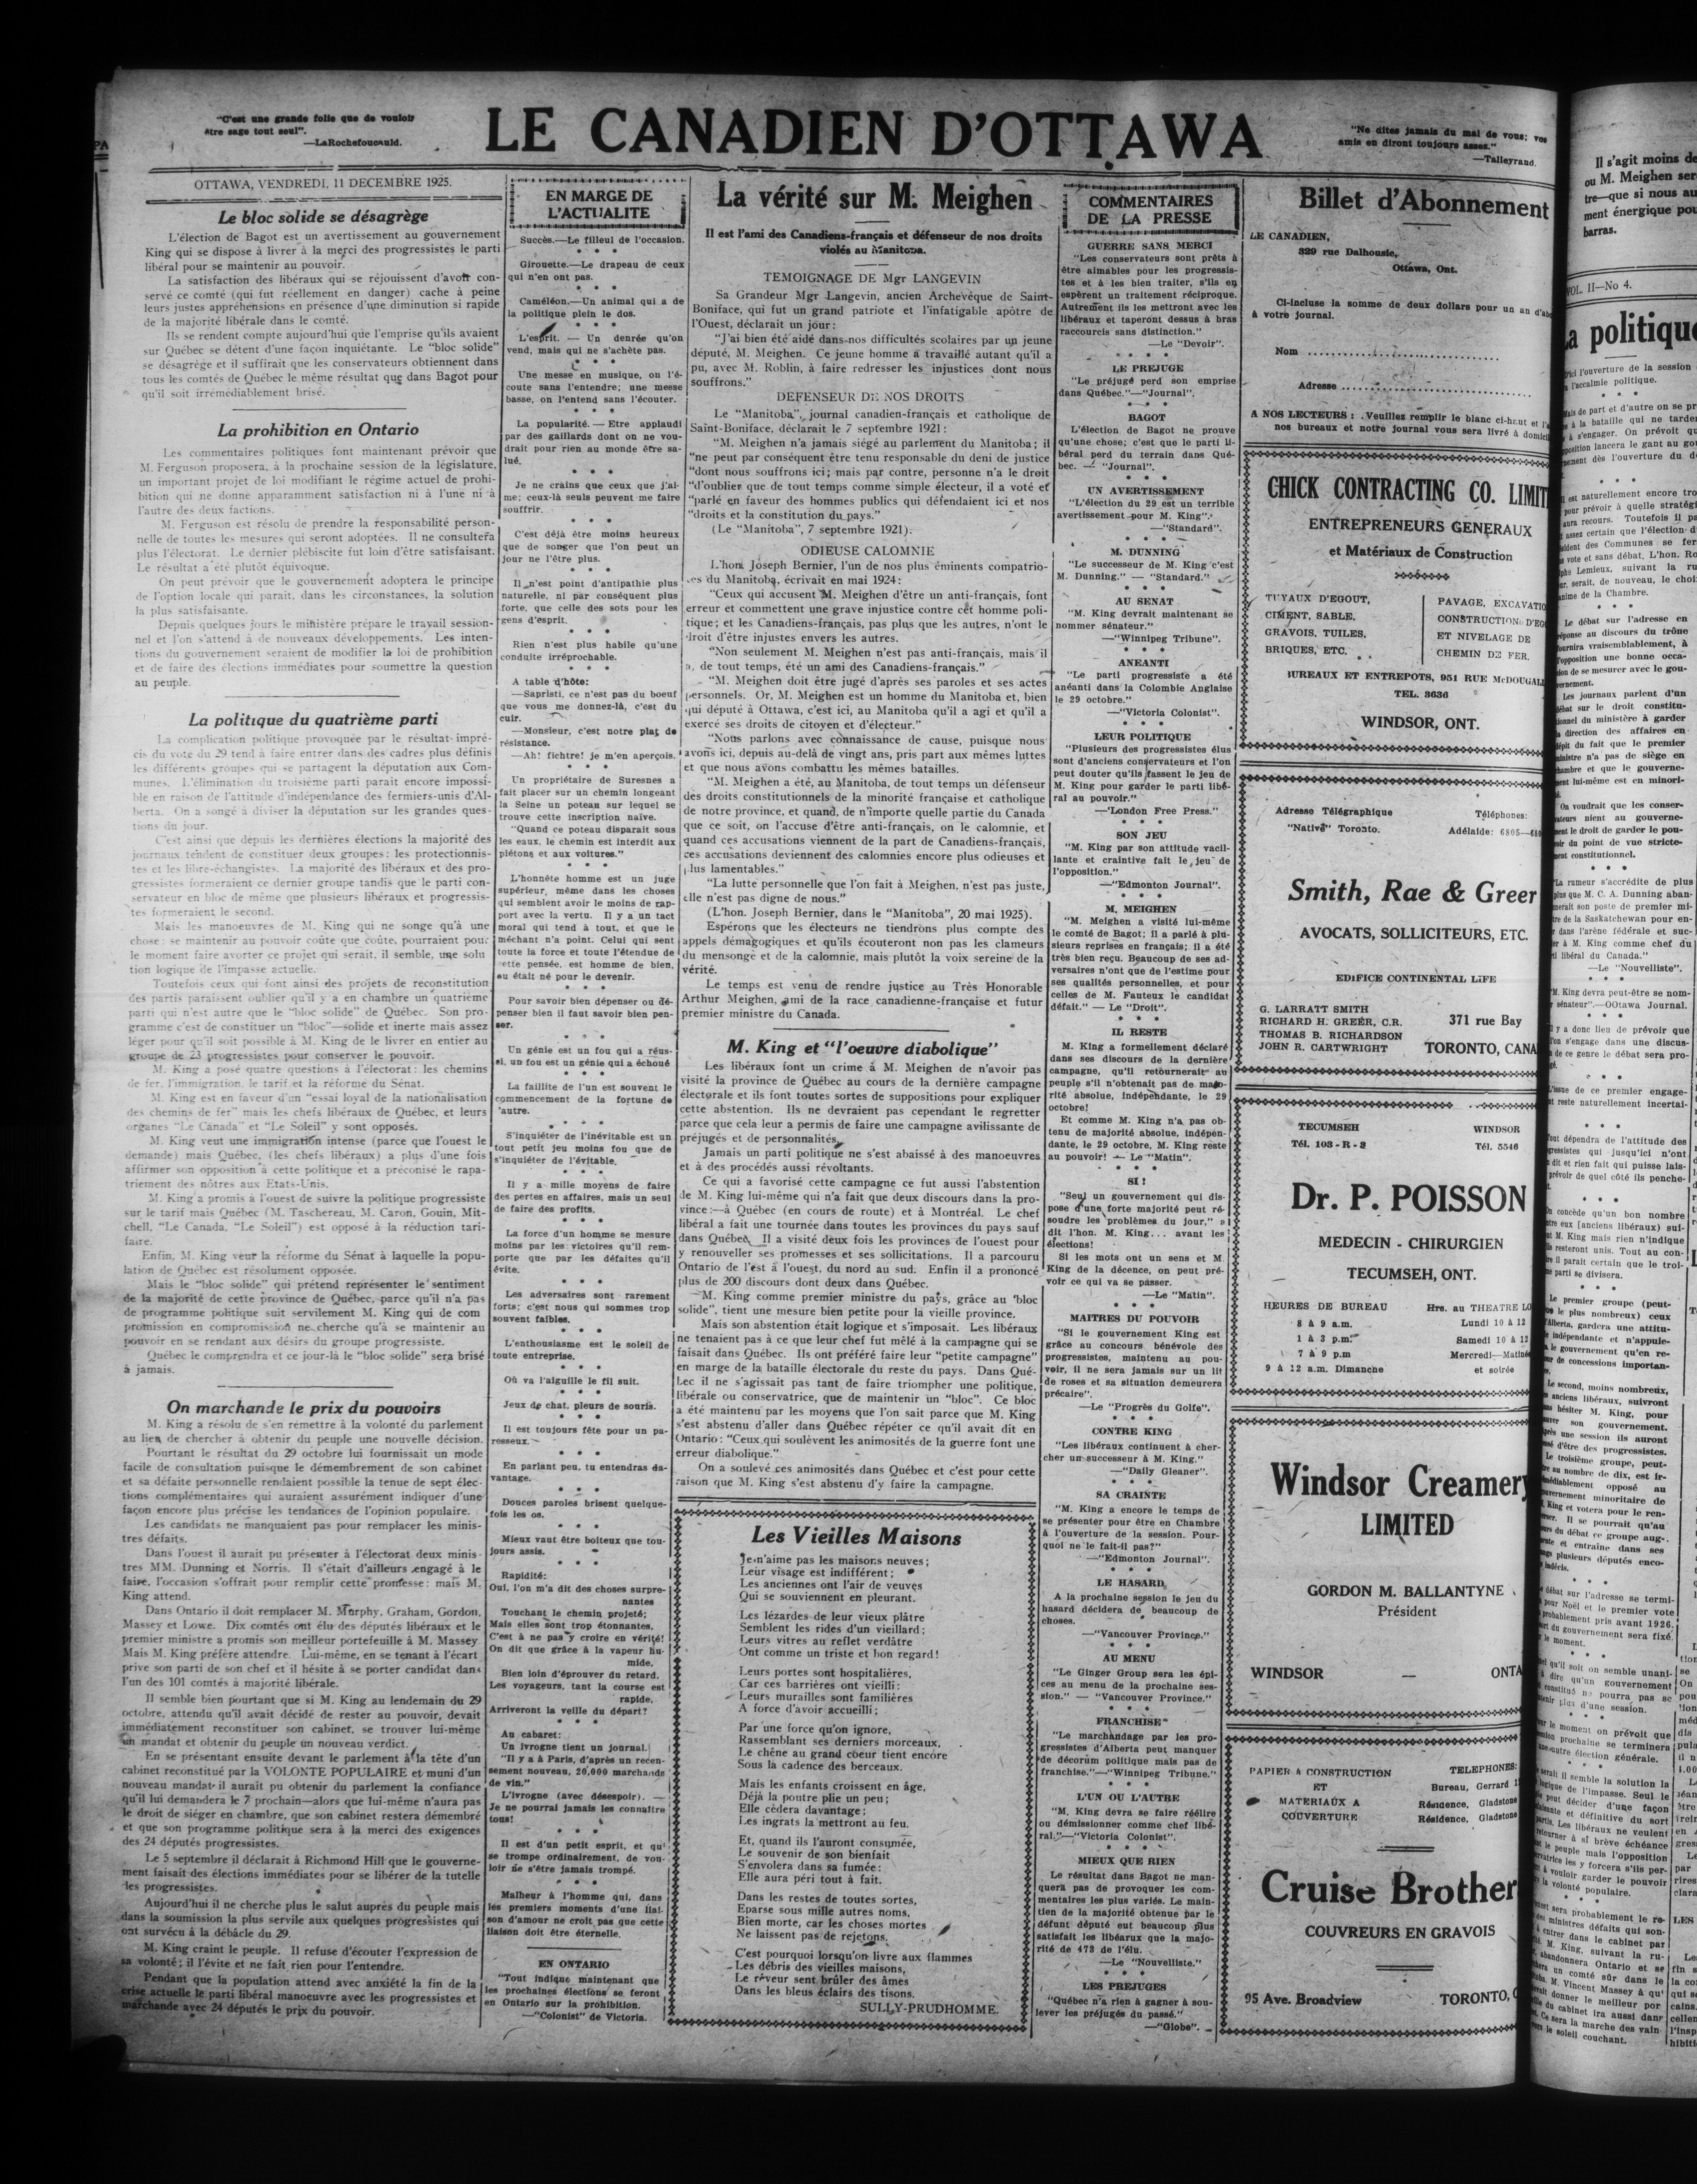 "C'est une grande folie que de vouloir
être sage tout seul".
—LaRochefoucauld.
LE CANADIEN D'OTTAWA
"Ne dites jamais du mal de vous; vos
amis en diront toujours assez."
—Talleyrand.
OTTAWA, VENDREDI, 11 DECEMBRE 1925.
Le bloc solide se désagrège
L'élection de Bagot est un avertissement au gouvernement
King qui se dispose à livrer à la merci des progressistes le parti
libéral pour se maintenir au pouvoir.
La satisfaction des libéraux qui se réjouissent d'avoir con-
servé ce comté (qui fut réellement en danger) cache à peine
leurs justes appréhensions en présence d'une diminution si rapide
de la majorité libérale dans le comté.
Ils se rendent compte aujourd'hui que l'emprise qu'ils avaient
sur Québec se détent d'une façon inquiétante. Le "bloc solide"
se désagrège et il suffirait que les conservateurs obtiennent dans
tous les comtés de Québec le même résultat que dans Bagot pour
qu'il soit irrémédiablement brisé.
La prohibition en Ontario
Les commentaires politiques font maintenant prévoir que
M. Ferguson proposera, à la prochaine session de la législature,
un important projet de loi modifiant le régime actuel de prohi-
bition qui ne donne apparamment satisfaction ni à l'une ni à
l'autre des deux factions.
M. Ferguson est résolu de prendre la responsabilité person-
nelle de toutes les mesures qui seront adoptées. Il ne consultera
plus l'électorat. Le dernier plébiscite fut loin d'être satisfaisant.
Le résultat a été plutôt équivoque.
On peut prévoir que le gouvernement adoptera le principe
de l'option locale qui parait, dans les circonstances, la solution
la plus satisfaisante.
Depuis quelques jours le ministère prépare le travail session-
nel et l'on s'attend à de nouveaux développements. Les inten-
tions du gouvernement seraient de modifier la loi de prohibition
et de faire des élections immédiates pour soumettre la question
au peuple.
La politique du quatrième parti
La complication politique provoquée par le résultat impré-
cis du vote du 29 tend à faire entrer dans des cadres plus définis
les différents groupes qui se partagent la députation aux Com-
munes. L'élimination du troisième parti parait encore impossi-
ble en raison de l'attitude d'indépendance des fermiers-unis d'Al-
berta. On a songé à diviser la députation sur les grandes ques-
tions du jour.
C'est ainsi que depuis les dernières élections la majorité des
journaux tendent de constituer deux groupes: les protectionnis-
tes et les libre-échangistes. La majorité des libéraux et des pro-
gressistes formeraient ce dernier groupe tandis que le parti con-
servateur en bloc de même que plusieurs libéraux et progressis-
tes formeraient le second.
Mais les manoeuvres de M. King qui ne songe qu'à une
chose: se maintenir au pouvoir coûte que coûte, pourraient pour
le moment faire avorter ce projet qui serait, il semble, une solu
tion logique de l'impasse actuelle.
Toutefois ceux qui font ainsi des projets de reconstitution
des partis paraissent oublier qu'il y a en chambre un quatrième
parti qui n'est autre que le "bloc solide" de Québec. Son pro-
gramme c'est de constituer un "bloc"—solide et inerte mais assez
léger pour qu'il soit possible à M. King de le livrer en entier au
groupe de 23 progressistes pour conserver le pouvoir.
M. King a posé quatre questions à l'électorat: les chemins
de fer, l'immigration, le tarif et la réforme du Sénat.
M. King est en faveur d'un "essai loyal de la nationalisation
des chemins de fer" mais les chefs libéraux de Québec, et leurs
organes "Le Canada" et "Le Soleil" y sont opposés.
M. King veut une immigration intense (parce que l'ouest le
demande) mais Québec, (les chefs libéraux) a plus d'une fois
affirmer son opposition à cette politique et a préconisé le rapa-
triement des nôtres aux Etats-Unis.
M. King a promis à l'ouest de suivre la politique progressiste
sur le tarif mais Québec (M. Taschereau, M. Caron, Gouin, Mit-
chell, "Le Canada, "Le Soleil") est opposé à la réduction tari-
faire.
Enfin, M. King veut la réforme du Sénat à laquelle la popu-
lation de Québec est résolument opposée.
Mais le "bloc solide" qui prétend représenter le sentiment
de la majorité de cette province de Québec, parce qu'il n'a pas
de programme politique suit servilement M. King qui de com
promission en compromission ne cherche qu'à se maintenir au
pouvoir en se rendant aux désirs du groupe progressiste.
Québec le comprendra et ce jour-là le "bloc solide" sera brisé
à jamais.
On marchande le prix du pouvoirs
M. King a résolu de s'en remettre à la volonté du parlement
au lieu de chercher à obtenir du peuple une nouvelle décision.
Pourtant le résultat du 29 octobre lui fournissait un mode
facile de consultation puisque le démembrement de son cabinet
et sa défaite personnelle rendaient possible la tenue de sept élec-
tions complémentaires qui auraient assurément indiquer d'une
façon encore plus précise les tendances de l'opinion populaire.
Les candidats ne manquaient pas pour remplacer les minis-
tres défaits.
Dans l'ouest il aurait pu présenter à l'électorat deux minis-
tres MM. Dunning et Norris. Il s'était d'ailleurs engagé à le
faire, l'occasion s'offrait pour remplir cette promesse: mais M.
King attend.
Dans Ontario il doit remplacer M. Murphy, Graham, Gordon,
Massey et Lowe. Dix comtés ont élu des députés libéraux et le
premier ministre a promis son meilleur portefeuille à M. Massey
Mais M. King préfère attendre. Lui-même, en se tenant à l'écart
prive son parti de son chef et il hésite à se porter candidat dans
l'un des 101 comtés à majorité libérale.
Il semble bien pourtant que si M. King au lendemain du 29
octobre, attendu qu'il avait décidé de rester au pouvoir, devait
immédiatement reconstituer son cabinet, se trouver lui-même
un mandat et obtenir du peuple un nouveau verdict.
En se présentant ensuite devant le parlement à la tête d'un
cabinet reconstitué par la VOLONTE POPULAIRE et muni d'un
nouveau mandat il aurait pu obtenir du parlement la confiance
qu'il lui demandera le 7 prochain—alors que lui-même n'aura pas
le droit de siéger en chambre, que son cabinet restera démembré
et que son programme politique sera à la merci des exigences
des 24 députés progressistes.
Le 5 septembre il déclarait à Richmond Hill que le gouverne-
ment faisait des élections immédiates pour se libérer de la tutelle
les progressistes.
Aujourd'hui il ne cherche plus le salut auprès du peuple mais
dans la soumission la plus servile aux quelques progressistes qui
ont survécu à la débâcle du 29.
M. King craint le peuple. Il refuse d'écouter l'expression de
sa volonté; il l'évite et ne fait rien pour l'entendre.
Pendant que la population attend avec anxiété la fin de la
crise actuelle le parti libéral manoeuvre avec les progressistes et
marchande avec 24 députés le prix du pouvoir.
EN MARGE DE
L'ACTUALITE
Succès.—Le filleul de l'occasion.
* * *
Girouette.—Le drapeau de ceux
qui n'en ont pas.
* * *
Caméléon.—Un animal qui a de
la politique plein le dos.
* * *
L'esprit. — Un denrée qu'on
vend, mais qui ne s'achète pas.
* * *
Une messe en musique, on l'é-
coute sans l'entendre; une messe
basse, on l'entend sans l'écouter.
* * *
La popularité. — Etre applaudi
par des gaillards dont on ne vou-
drait pour rien au monde être sa-
lué.
* * *
Je ne crains que ceux que j'ai-
me; ceux-là seuls peuvent me faire
souffrir.
* * *
C'est déjà être moins heureux
que de songer que l'on peut un
jour ne l'être plus.
* * *
Il n'est point d'antipathie plus
naturelle, ni par conséquent plus
forte, que celle des sots pour les
gens d'esprit.
* * *
Rien n'est plus habile qu'une
conduite irréprochable.
* * *
A table d'hôte:
—Sapristi, ce n'est pas du boeuf
que vous me donnez-là, c'est du
cuir.
—Monsieur, c'est notre plat de
résistance.
—Ah! fichtre! je m'en aperçois.
* * *
Un propriétaire de Suresnes a
fait placer sur un chemin longeant
la Seine un poteau sur lequel se
trouve cette inscription naïve.
"Quand ce poteau disparait sous
les eaux, le chemin est interdit aux
piétons et aux voitures."
* * *
L'honnête homme est un juge
supérieur, même dans les choses
qui semblent avoir le moins de rap-
port avec la vertu. Il y a un tact
moral qui tend à tout, et que le
méchant n'a point. Celui qui sent
toute la force et toute l'étendue de
cette pensée, est homme de bien,
ou était né pour le devenir.
* * *
Pour savoir bien dépenser ou dé-
penser bien il faut savoir bien pen-
ser.
* * *
Un génie est un fou qui a réus-
si, un fou est un génie qui a échoué
* * *
La faillite de l'un est souvent le
commencement de la fortune de
'autre.
* * *
S'inquiéter de l'inévitable est un
tout petit jeu moins fou que de
s'inquiéter de l'évitable.
* * *
Il y a mille moyens de faire
des pertes en affaires, mais un seul
de faire des profits.
* * *
La force d'un homme se mesure
moins par les victoires qu'il rem-
porte que par les défaites qu'il
évite.
* * *
Les adversaires sont rarement
forts; c'est nous qui sommes trop
souvent faibles.
* * *
L'enthousiasme est le soleil de
toute entreprise.
* * *
Où va l'aiguille le fil suit.
* * *
Jeux de chat, pleurs de souris.
* * *
Il est toujours fête pour un pa-
resseux.
* * *
En parlant peu, tu entendras da-
vantage.
* * *
Douces paroles brisent quelque-
fois les os.
* * *
Mieux vaut être boiteux que tou-
jours assis.
* * *
Rapidité:
Oui, l'on m'a dit des choses surpre-
nantes
Touchant le chemin projeté;
Mais elles sont trop étonnantes,
C'est à ne pas y croire en vérité!
On dit que grâce à la vapeur hu-
mide,
Bien loin d'éprouver du retard,
Les voyageurs, tant la course est
rapide,
Arriveront la veille du départ?
* * *
Au cabaret:
Un ivrogne tient un journal.
"Il y a à Paris, d'après un recen-
sement nouveau, 20,000 marchands
de vin."
L'ivrogne (avec désespoir). —
Je ne pourrai jamais les connaître
tous!
* * *
Il est d'un petit esprit, et qui
se trompe ordinairement, de vou-
loir ne s'être jamais trompé.
* * *
Malheur à l'homme qui, dans
les premiers moments d'une liai-
son d'amour ne croit pas que cette
liaison doit être éternelle.
EN ONTARIO
"Tout indique maintenant que
les prochaines élections se feront
en Ontario sur la prohibition.
—"Colonist" de Victoria.
La vérité sur M. Meighen
Il est l'ami des Canadiens-français et défenseur de nos droits
violés au Manitoba.
TEMOIGNAGE DE Mgr LANGEVIN
Sa Grandeur Mgr Langevin, ancien Archevêque de Saint-
Boniface, qui fut un grand patriote et l'infatigable apôtre de
l'Ouest, déclarait un jour:
"J'ai bien été aidé dans nos difficultés scolaires par un jeune
député, M. Meighen. Ce jeune homme a travaillé autant qu'il a
pu, avec M. Roblin, à faire redresser les injustices dont nous
souffrons."
DEFENSEUR DE NOS DROITS
Le "Manitoba", journal canadien-français et catholique de
Saint-Boniface, déclarait le 7 septembre 1921:
"M. Meighen n'a jamais siégé au parlement du Manitoba; il
"ne peut par conséquent être tenu responsable du deni de justice
"dont nous souffrons ici; mais par contre, personne n'a le droit
"d'oublier que de tout temps comme simple électeur, il a voté et
"parlé en faveur des hommes publics qui défendaient ici et nos
"droits et la constitution du pays."
(Le "Manitoba", 7 septembre 1921).
ODIEUSE CALOMNIE
L'hon. Joseph Bernier, l'un de nos plus éminents compatrio-
tes du Manitoba, écrivait en mai 1924:
"Ceux qui accusent M. Meighen d'être un anti-français, font
erreur et commettent une grave injustice contre cet homme poli-
tique; et les Canadiens-français, pas plus que les autres, n'ont le
droit d'être injustes envers les autres.
"Non seulement M. Meighen n'est pas anti-français, mais il
a, de tout temps, été un ami des Canadiens-français."
"M. Meighen doit être jugé d'après ses paroles et ses actes
personnels. Or, M. Meighen est un homme du Manitoba et, bien
qui député à Ottawa, c'est ici, au Manitoba qu'il a agi et qu'il a
exercé ses droits de citoyen et d'électeur."
"Nous parlons avec connaissance de cause, puisque nous
avons ici, depuis au-delà de vingt ans, pris part aux mêmes luttes
et que nous avons combattu les mêmes batailles.
"M. Meighen a été, au Manitoba, de tout temps un défenseur
des droits constitutionnels de la minorité française et catholique
de notre province, et quand, de n'importe quelle partie du Canada
que ce soit, on l'accuse d'être anti-français, on le calomnie, et
quand ces accusations viennent de la part de Canadiens-français,
ces accusations deviennent des calomnies encore plus odieuses et
plus lamentables."
"La lutte personnelle que l'on fait à Meighen, n'est pas juste,
elle n'est pas digne de nous."
(L'hon. Joseph Bernier, dans le "Manitoba", 20 mai 1925).
Espérons que les électeurs ne tiendrons plus compte des
appels démagogiques et qu'ils écouteront non pas les clameurs
du mensonge et de la calomnie, mais plutôt la voix sereine de la
vérité.
Le temps est venu de rendre justice au Très Honorable
Arthur Meighen, ami de la race canadienne-française et futur
premier ministre du Canada.
M. King et "l'oeuvre diabolique"
Les libéraux font un crime à M. Meighen de n'avoir pas
visité la province de Québec au cours de la dernière campagne
électorale et ils font toutes sortes de suppositions pour expliquer
cette abstention. Ils ne devraient pas cependant le regretter
parce que cela leur a permis de faire une campagne avilissante de
préjugés et de personnalités.
Jamais un parti politique ne s'est abaissé à des manoeuvres
et à des procédés aussi révoltants.
Ce qui a favorisé cette campagne ce fut aussi l'abstention
de M. King lui-même qui n'a fait que deux discours dans la pro-
vince:—à Québec (en cours de route) et à Montréal. Le chef
libéral a fait une tournée dans toutes les provinces du pays sauf
dans Québec. Il a visité deux fois les provinces de l'ouest pour
y renouveller ses promesses et ses sollicitations. Il a parcouru
Ontario de l'est à l'ouest, du nord au sud. Enfin il a prononcé
plus de 200 discours dont deux dans Québec.
M. King comme premier ministre du pays, grâce au 'bloc
solide", tient une mesure bien petite pour la vieille province.
Mais son abstention était logique et s'imposait. Les libéraux
ne tenaient pas à ce que leur chef fut mêlé à la campagne qui se
faisait dans Québec. Ils ont préféré faire leur "petite campagne"
en marge de la bataille électorale du reste du pays. Dans Qué-
bec il ne s'agissait pas tant de faire triompher une politique,
libérale ou conservatrice, que de maintenir un "bloc". Ce bloc
a été maintenu par les moyens que l'on sait parce que M. King
s'est abstenu d'aller dans Québec répéter ce qu'il avait dit en
Ontario: "Ceux qui soulèvent les animosités de la guerre font une
erreur diabolique."
On a soulevé ces animosités dans Québec et c'est pour cette
raison que M. King s'est abstenu d'y faire la campagne.
Les Vieilles Maisons
Je n'aime pas les maisons neuves;
Leur visage est indifférent;
Les anciennes ont l'air de veuves
Qui se souviennent en pleurant.
Les lézardes de leur vieux plâtre
Semblent les rides d'un vieillard;
Leurs vitres au reflet verdâtre
Ont comme un triste et bon regard!
Leurs portes sont hospitalières,
Car ces barrières ont vieilli:
Leurs murailles sont familières
A force d'avoir accueilli;
Par une force qu'on ignore,
Rassemblant ses derniers morceaux,
Le chêne au grand coeur tient encore
Sous la cadence des berceaux.
Mais les enfants croissent en âge,
Déjà la poutre plie un peu;
Elle cèdera davantage;
Les ingrats la mettront au feu.
Et, quand ils l'auront consumée,
Le souvenir de son bienfait
S'envolera dans sa fumée:
Elle aura péri tout à fait.
Dans les restes de toutes sortes,
Eparse sous mille autres noms,
Bien morte, car les choses mortes
Ne laissent pas de rejetons.
C'est pourquoi lorsqu'on livre aux flammes
Les débris des vieilles maisons,
Le rêveur sent brûler des âmes
Dans les bleus éclairs des tisons.
SULLY-PRUDHOMME.
COMMENTAIRES
DE LA PRESSE
GUERRE SANS MERCI
"Les conservateurs sont prêts à
être aimables pour les progressis-
tes et à les bien traiter, s'ils en
espèrent un traitement réciproque.
Autrement ils les mettront avec les
libéraux et taperont dessus à bras
raccourcis sans distinction."
—Le "Devoir".
* * * *
LE PREJUGE
"Le préjugé perd son emprise
dans Québec."—"Journal".
* * *
BAGOT
L'élection de Bagot ne prouve
qu'une chose; c'est que le parti li-
béral perd du terrain dans Qué-
bec. — "Journal".
* * *
UN AVERTISSEMENT
"L'élection du 29 est un terrible
avertissement pour M. King".
—"Standard".
* * *
M. DUNNING
"Le successeur de M. King c'est
M. Dunning." — "Standard."
* * *
AU SENAT
"M. King devrait maintenant se
nommer sénateur."
—"Winnipeg Tribune".
* * *
ANEANTI
"Le parti progressiste a été
anéanti dans la Colombie Anglaise
le 29 octobre."
—"Victoria Colonist".
* * *
LEUR POLITIQUE
"Plusieurs des progressistes élus
sont d'anciens conservateurs et l'on
peut douter qu'ils fassent le jeu de
M. King pour garder le parti libé-
ral au pouvoir."
—"London Free Press."
* * *
SON JEU
"M. King par son attitude vacil-
lante et craintive fait le jeu de
l'opposition."
—"Edmonton Journal".
* * *
M. MEIGHEN
"M. Meighen a visité lui-même
le comté de Bagot; il a parlé à plu-
sieurs reprises en français; il a été
très bien reçu. Beaucoup de ses ad-
versaires n'ont que de l'estime pour
ses qualités personnelles, et pour
celles de M. Fauteux le candidat
défait." — Le "Droit".
* * *
IL RESTE
M. King a formellement déclaré
dans ses discours de la dernière
campagne, qu'il retournerait au
peuple s'il n'obtenait pas de majo-
rité absolue, indépendante, le 29
octobre!
Et comme M. King n'a pas ob-
tenu de majorité absolue, indépen-
dante, le 29 octobre, M. King reste
au pouvoir! — Le "Matin".
* * * *
SI!
"Seul un gouvernement qui dis-
pose d'une forte majorité peut ré-
soudre les problèmes du jour," a
dit l'hon. M. King... avant les
élections!
Si les mots ont un sens et M.
King de la décence, on peut pré-
voir ce qui va se passer.
—Le "Matin".
* * *
MAITRES DU POUVOIR
"Si le gouvernement King est
grâce au concours bénévole des
progressistes, maintenu au pou-
voir, il ne sera jamais sur un lit
de roses et sa situation demeurera
précaire".
—Le "Progrès du Golfe".
* * *
CONTRE KING
"Les libéraux continuent à cher-
cher un successeur à M. King."
—"Daily Gleaner".
* * *
SA CRAINTE
"M. King a encore le temps de
se présenter pour être en Chambre
à l'ouverture de la session. Pour-
quoi ne le fait-il pas?"
—"Edmonton Journal".
* * *
LE HASARD
A la prochaine session le jeu du
hasard décidera de beaucoup de
choses.
—"Vancouver Province."
* * *
AU MENU
"Le Ginger Group sera les épi-
ces au menu de la prochaine ses-
sion." — "Vancouver Province."
* * *
FRANCHISE
"Le marchandage par les pro-
gressistes d'Alberta peut manquer
de décorum politique mais pas de
franchise."—"Winnipeg Tribune."
* * *
L'UN OU L'AUTRE
"M. King devra se faire réélire
ou démissionner comme chef libé-
ral."—"Victoria Colonist".
* * * *
MIEUX QUE RIEN
Le résultat dans Bagot ne man-
quera pas de provoquer les com-
mentaires les plus variés. Le main-
tien de la majorité obtenue par le
défunt député eut beaucoup plus
satisfait les libéraux que la majo-
rité de 473 de l'élu.
—Le "Nouvelliste".
* * *
LES PREJUGES
"Québec n'a rien à gagner à sou-
lever les préjugés du passé."
—"Globe".
Billet d'Abonnement
LE CANADIEN,
329 rue Dalhousie,
Ottawa, Ont.
Ci-incluse la somme de deux dollars pour un an d'abo
à votre journal.
Nom
Adresse
A NOS LECTEURS: Veuillez remplir le blanc ci-haut et l'a
nos bureaux et notre journal vous sera livré à domicil
CHICK CONTRACTING CO. LIMIT
ENTREPRENEURS GENERAUX
et Matériaux de Construction
TUYAUX D'EGOUT,
CIMENT, SABLE,
GRAVOIS, TUILES,
BRIQUES, ETC.
PAVAGE, EXCAVATIO
CONSTRUCTIONS D'EGO
ET NIVELAGE DE
CHEMIN DE FER.
BUREAUX ET ENTREPOTS, 951 RUE McDOUGALL
TEL. 3636
WINDSOR, ONT.
Adresse Télégraphique
"Native" Toronto.
Téléphones:
Adélaide: 6805—680
Smith, Rae & Greer
AVOCATS, SOLLICITEURS, ETC.
EDIFICE CONTINENTAL LIFE
G. LARRATT SMITH
RICHARD H. GREER, C.R.
THOMAS B. RICHARDSON
JOHN R. CARTWRIGHT
371 rue Bay
TORONTO, CANA
TECUMSEH
Tél. 103 - R - 2
WINDSOR
Tél. 5546
Dr. P. POISSON
MEDECIN - CHIRURGIEN
TECUMSEH, ONT.
HEURES DE BUREAU
8 à 9 a.m.
1 à 3 p.m.
7 à 9 p.m
9 à 12 a.m. Dimanche
Hrs. au THEATRE LO
Lundi 10 à 12
Samedi 10 à 12
Mercredi—Matinée
et soirée
Windsor Creamery
LIMITED
GORDON M. BALLANTYNE
Président
WINDSOR — ONTA
PAPIER A CONSTRUCTION
ET
MATERIAUX A
COUVERTURE
TELEPHONES:
Bureau, Gerrard 1
Résidence, Gladstone
Résidence, Gladstone
Cruise Brother
COUVREURS EN GRAVOIS
95 Ave. Broadview
TORONTO, O
Il s'agit moins de
ou M. Meighen ser
tre—que si nous au
ment énergique pou
barras.
VOL. II—No 4.
La politique